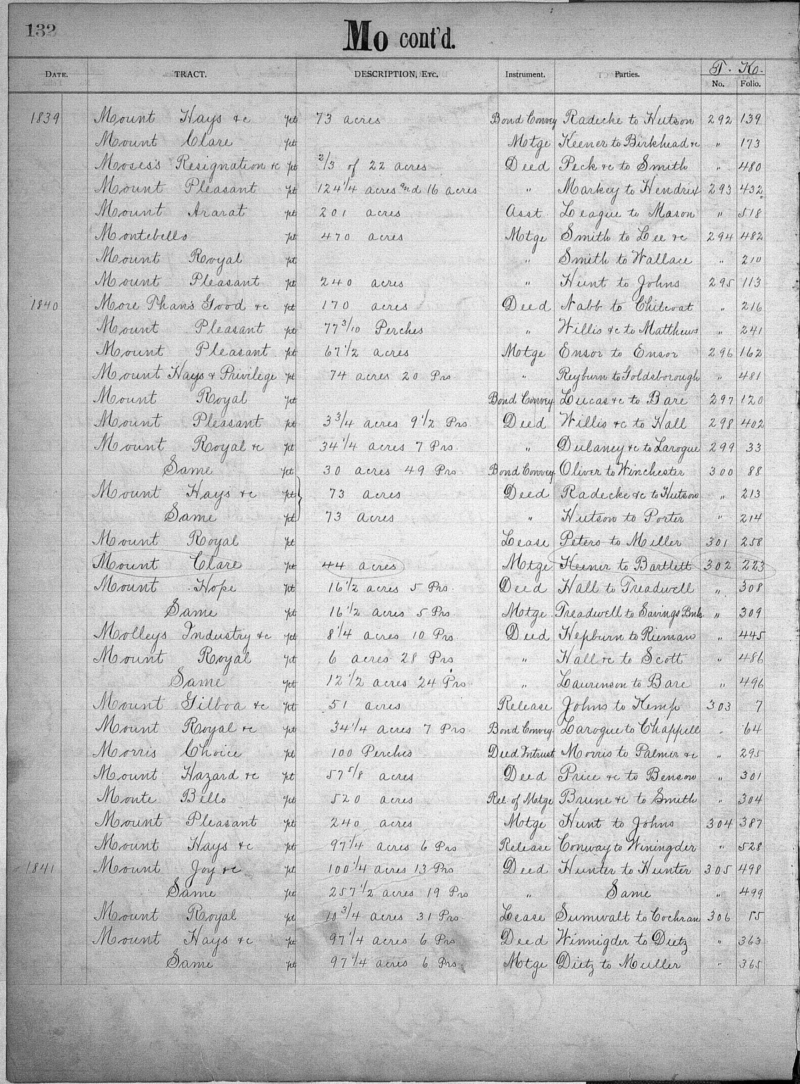 132
Mo cont'd.
DATE. TRACT. DESCRIPTION, Etc. Instrument. Parties. T. K. No. Folio.
1839 Mount Hays &c pt 73 acres Bond Convey Radecke to Hutson 292 139
Mount Clare pt Motge Keener to Birkhead &c " 173
Moses's Resignation &c pt 2/3 of 22 acres Deed Peck &c to Smith " 480
Mount Pleasant pt 124 1/4 acres and 16 acres " Markey to Hendrix 293 432
Mount Ararat pt 201 acres Asst League to Mason " 518
Montebello pt 470 acres Motge Smith to Lee &c 294 482
Mount Royal pt " Smith to Wallace " 210
Mount Pleasant pt 240 acres " Hunt to Johns 295 113
1840 More Than's Good &c pt 170 acres Deed Nabb to Chilcoat " 216
Mount Pleasant pt 77 3/10 Perches " Willis &c to Matthews " 241
Mount Pleasant pt 67 1/2 acres Motge Ensor to Ensor 296 162
Mount Hays & Privilege pt 74 acres 20 Prs " Reyburn to Goldsborough " 481
Mount Royal pt Bond Convey Lucas &c to Bare 297 120
Mount Pleasant pt 3 3/4 acres 9 1/2 Prs Deed Willis &c to Hall 298 402
Mount Royal &c pt 34 1/4 acres 7 Prs " Dulaney &c to Larogue 299 33
Same pt 30 acres 49 Prs Bond Convey Oliver to Winchester 300 88
Mount Hays &c pt 73 acres Deed Radecke &c to Hutson " 213
Same pt 73 acres " Hutson to Porter " 214
Mount Royal pt Lease Peters to Miller 301 258
Mount Clare pt 44 acres Motge Keener to Bartlett 302 223
Mount Hope pt 16 1/2 acres 5 Prs Deed Hall to Treadwell " 308
Same pt 16 1/2 acres 5 Prs Motge Treadwell to Savings Bnk " 309
Molleys Industry &c pt 8 1/4 acres 10 Prs Deed Hepburn to Rieman " 445
Mount Royal pt 6 acres 28 Prs " Hall &c to Scott " 486
Same pt 12 1/2 acres 24 Prs " Laurinson to Bare " 496
Mount Gilboa &c pt 51 acres Release Johns to Kemp 303 7
Mount Royal &c pt 34 1/4 acres 7 Prs Bond Convey Larogue to Chappell " 64
Morris Choice pt 100 Perches Deed Intrust Morris to Palmer &c " 295
Mount Hazard &c pt 57 5/8 acres Deed Price &c to Benson " 301
Monte Bello pt 520 acres Rel of Motge Brune &c to Smith " 304
Mount Pleasant pt 240 acres Motge Hunt to Johns 304 387
Mount Hays &c pt 97 1/4 acres 6 Prs Release Conway to Winingder " 528
1841 Mount Joy &c pt 100 1/4 acres 13 Prs Deed Hunter to Hunter 305 498
Same pt 257 1/2 acres 19 Prs " Same " 499
Mount Royal pt 10 3/4 acres 31 Prs Lease Sumwalt to Cochran 306 55
Mount Hays &c pt 97 1/4 acres 6 Prs Deed Winnigder to Dietz " 363
Same pt 97 1/4 acres 6 Prs Motge Dietz to Muller " 365